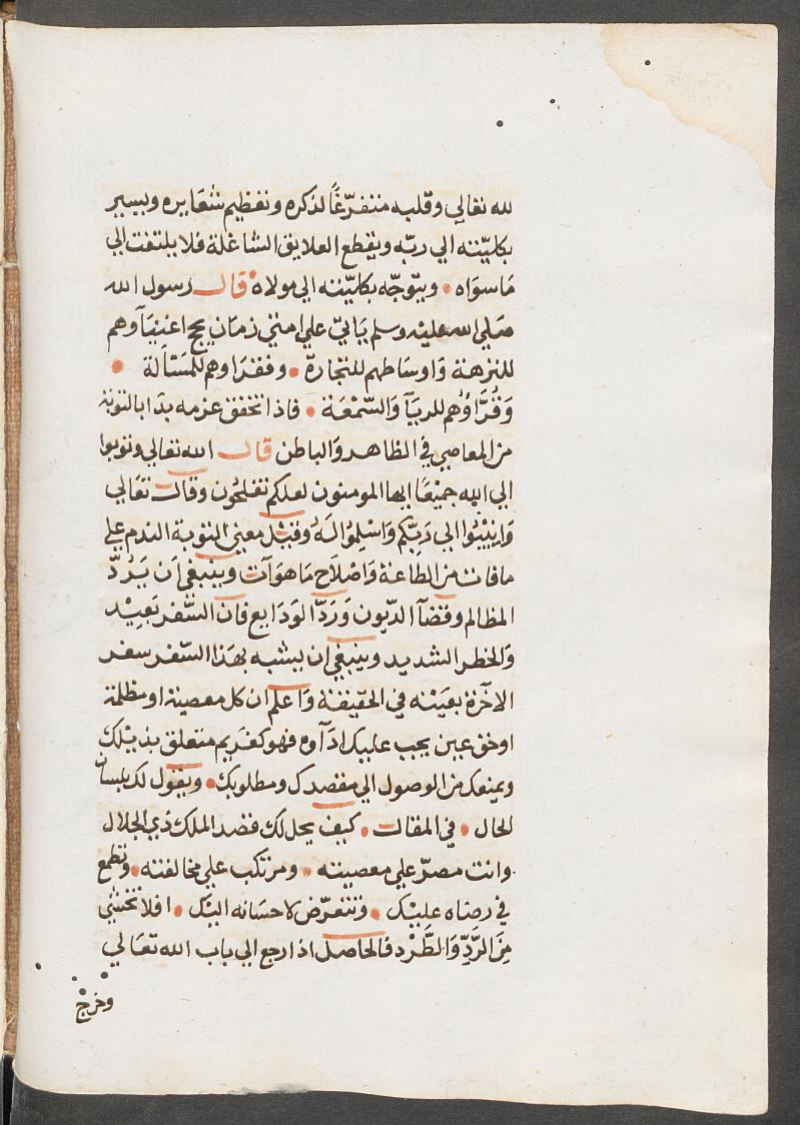 لله تعالي وقلبه متفرّغًا لذكره وتعظيم شعايره ويسير
بكليّته الي ربّه ويقطع العلايق الشاغلة فلا يلتفت الي
مَاسوَاه • ويتوجّه بكليّته الي مولاه • قال رسول الله
صلي الله عليه وسلم يَاتيّ علي امتي زمَان يحج اغنيَآوهم
للنزهة وَاوسَاطهم للتجارة • وفقرَاوهم للمَسئَالة •
وَقُرَّاؤُهم للريَآ وَالسّمْعَة • فاذا تحقق عزمه بدَا بالتوبة
من المعاصي في الظاهر وَالباطن قال الله تعالي وتوبوا
الي الله جميْعًا ايها المومنون لعلكم تفلحُون وقال تعَالي
وَانِيْبُوا الي رَبِّكم وَاسْلِمُوا لَهُ وقيْل معني التوبة الندم علي
مافات من الطاعة وَاصْلاح مَا هوَ آت وينبغي اَن يَرُدّ
المظالم وقضَآ الدّيون وَرَدّ الوَدَايع فان السّفر بَعِيْد
وَالخطر الشديد وينبغي ان يشبه بهذا السّفر سفر
الاخرَة بعَيْنه في الحقيقة وَاعلم ان كل معصية او مظلمة
اوحق عبْن يجب عليك ادَآوه فهو كغرَيم متعلق بذيْلك
ويمنعك من الوصول الي مقصدك ومطلوبك • ويقول لك بلسان
الحال • في المقال • كيف يحل لك قصد الملك ذي الجلال
وانت مصرّ علي معصيته • ومرتكب علي مخالفته • وتطمع
في رضاه عليْك • وتتعرّض لاحسَانه اليْك • افلا تخشي
مِنَ الرَّدِّ وَالطَّرْد فالحاصل اذا رجع الي باب الله تعَالي
وخرج